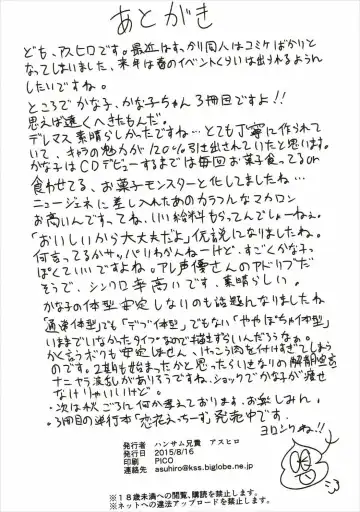 あとがき
ども、アスヒロです。最近はすっかり同人はコミケばかりと
なってしまいました、来年は春のイベントくらいは出られるようん
したいですね。
ところでかな子、かな子ちゃん3冊目ですよ!!
思えば遠くへきたもんだ。
デレマス素晴らしかったですね…とても丁寧に作られて
いて、キャラの魅力が120%引き出されていたと思います。
かな子はCDデビューするまでは毎回お菓子食ってるor
食わせてる、お菓子モンスターと化してましたね…
ニュージェネに差し入れたあのカラフルなマカロン
お高いんですってね、いい給料もらってんでしょーねぇ。
「おいしいから大丈夫だよ」伝説になりましたね。
何言ってるかサッパリわかんねーけど、すごくかな子っ
ぽくていいですよね。アレ声優さんのアドリブだ
そうで、シンクロ率高いです、素晴らしい。
かな子の体型安定しないのも話題になりましたね
「通常体型」でも「デブ体型」でもない「ややぽちゃ体型」
いままでいなかったタイプなので描きずらいんだろうなぁ。
かく言うボクも安定しません、けっこう肉を付けすぎてしまう
のです。2期も始まったかと思ったらいきなりの解散宣言
ナニやら波乱がありそうですね、ショックでかな子が痩せ
なけりゃいいけど。
・次は秋ごろに何か考えております、お楽しみに。
・3冊目の単行本「恋花えっちーず」発売中です。
ヨロシクね!!
発行者 ハンサム兄貴 アスヒロ
発行日 2015/8/16
印刷 PICO
連絡先 asuhiro@kss.biglobe.ne.jp
※18歳未満への閲覧、購読を禁止します。
※ネットへの違法アップロードを禁止します。